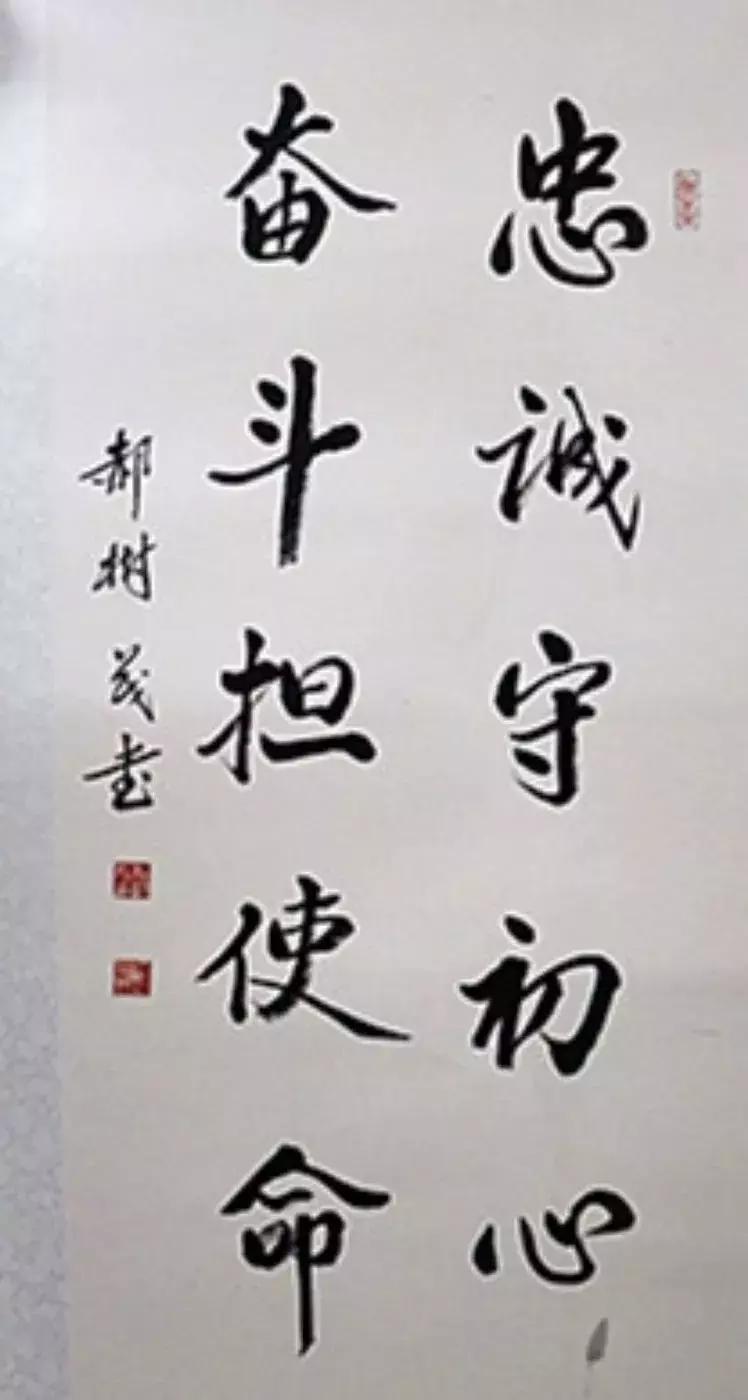 忠诚守初心
奋斗担使命
郝树茂书